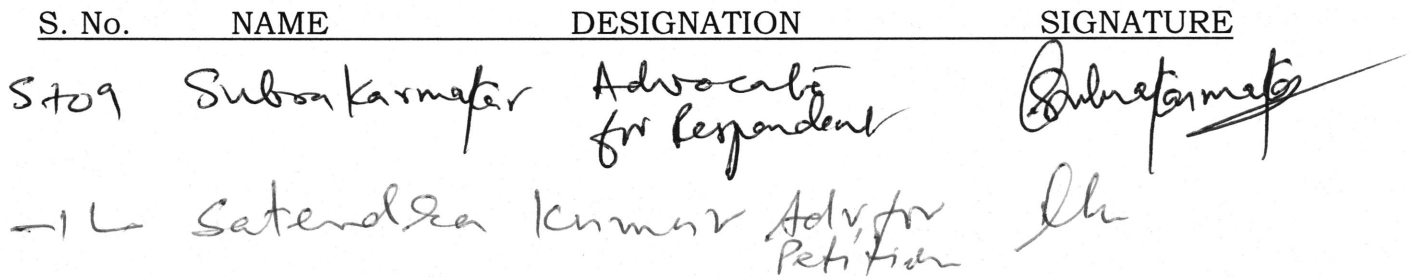 S. No. NAME DESIGNATION SIGNATURE
5 to 9 Subra Karmakar Advocate
for Respondent
Satendra Kumar Adv. for
Petition